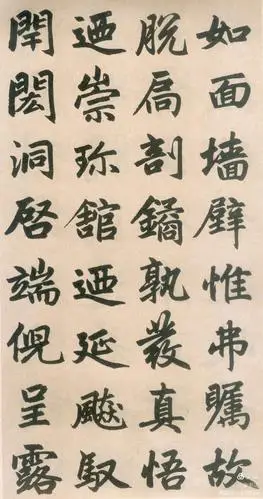 如面墻壁惟弗矚故
脫扃剖鐍孰發真悟
迺崇珎館迺延飈馭
閈閎洞啓端倪呈露